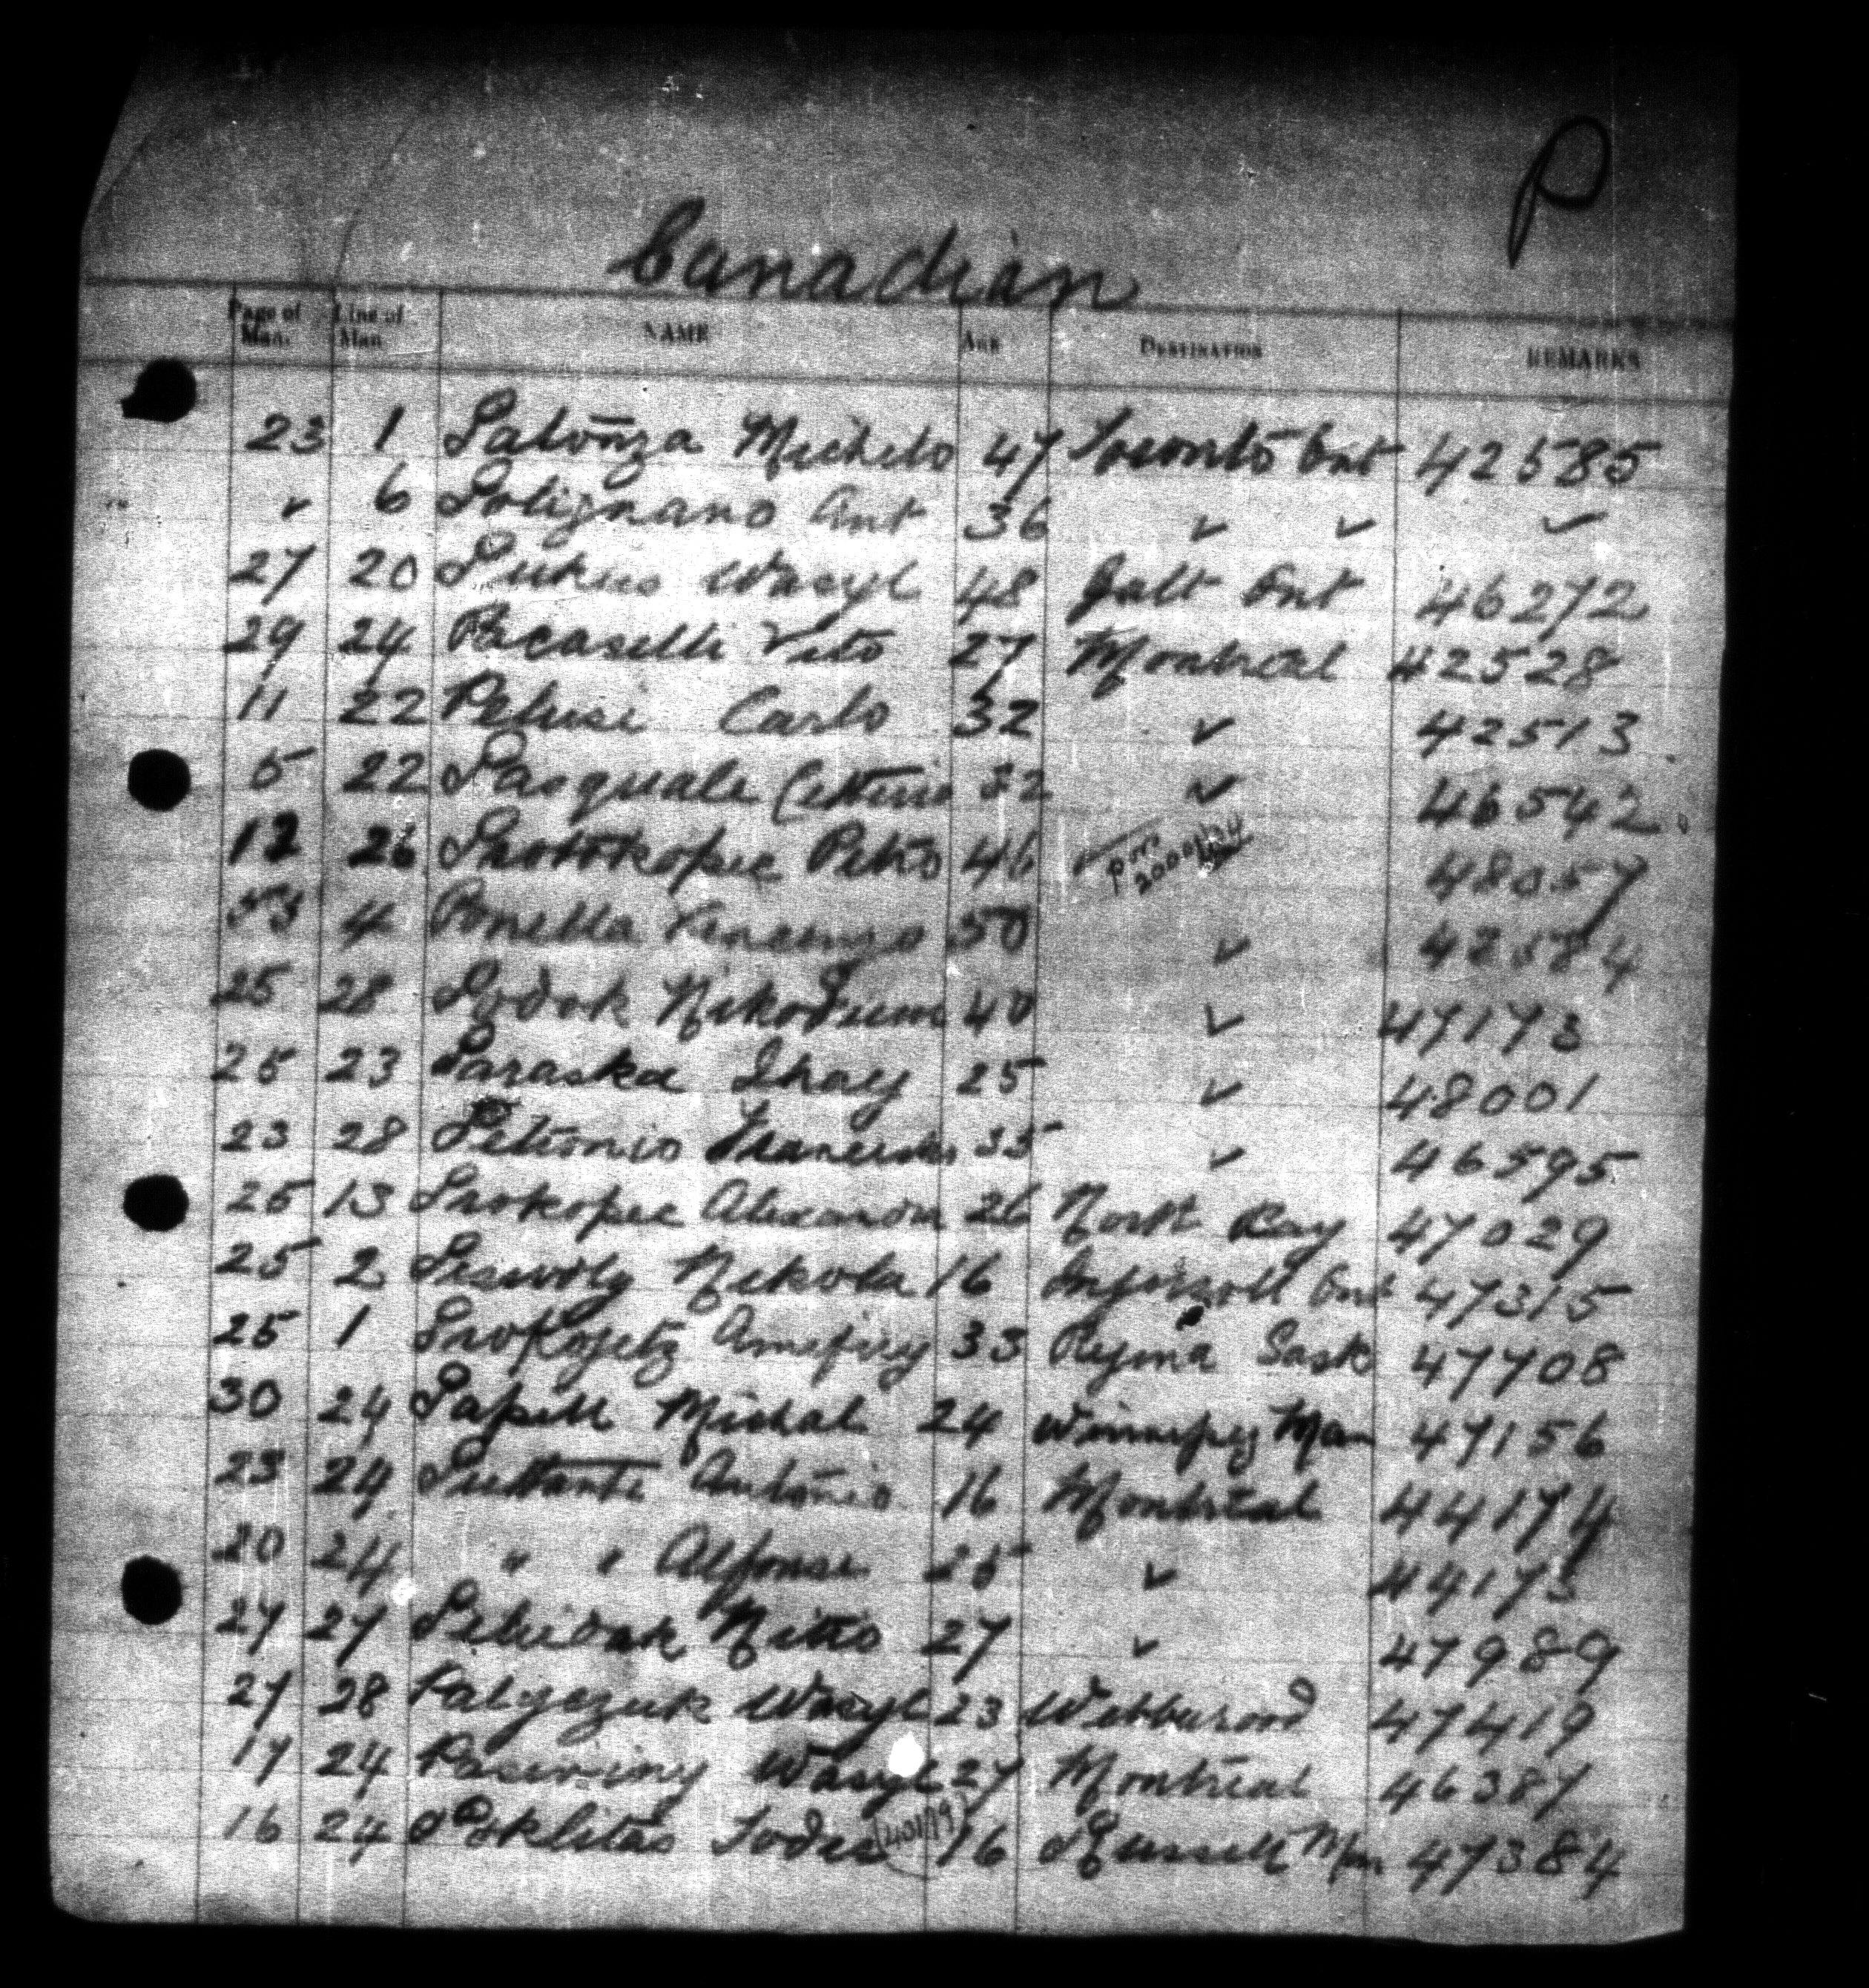 P
Canadian
Page of Man. Line of Man NAME Age DESTINATION REMARKS
23 1 Palonza Michele 47 Toronto Ont 42585
✓ 6 Polignano Ant 36 ✓ ✓ ✓
27 20 Wasyl 48 Galt Ont 46272
29 24 Pacaselli Vito 27 Montreal 42528
11 22 Pelusi Carlo 32 ✓ 42513
5 22 Pasquale 32 ✓ 46542
12 26 Protokopec Petro 46 ✓ 48057
4 Ponella Vincenzo 50 ✓ 42584
25 28 Podok Nikodum 40 ✓ 47173
25 23 Paraska Ihay 25 ✓ 48001
23 28 Petronio 35 ✓ 46595
25 13 Prokopec Alexander 26 North Bay 47029
25 2 Nikola 16 Ingersoll Ont 47315
25 1 33 Regina Sask 47708
30 24 Michal 24 Winnipeg Man 47156
23 24 Antonio 16 Montreal 44174
20 24 " " Alfonse 25 ✓ 44173
27 27 27 ✓ 47989
27 28 Palyczuk Wasyl 23 Webbwood 47419
17 24 Wasyl 27 Montreal 46387
16 24 Poklitas 16 Russell Man 47384